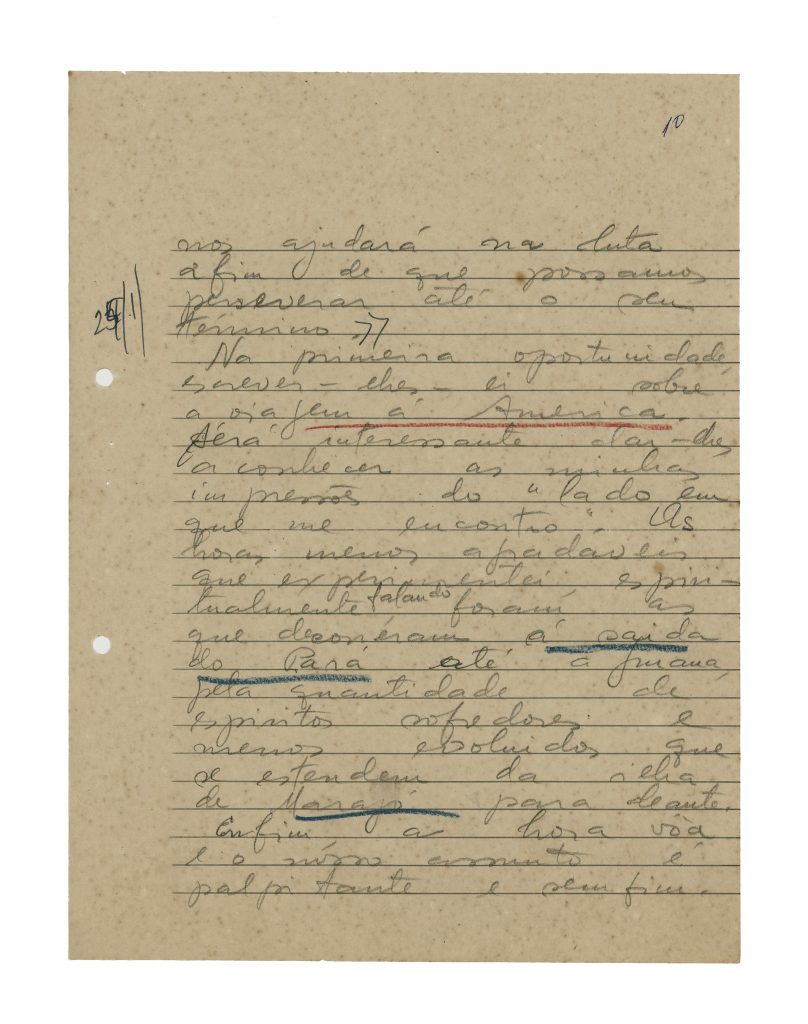 10
nos ajudará na luta
afim de que possamos
perseverar até o seu
término.
Na primeira oportunidade,
escrever-lhes-ei sobre
a viagem á America.
Será interessante dar-lhes
a conhecer as minhas
impressões do "lado em
que me encontro". As
horas menos agradáveis
que experimentei espiri-
tualmente falando foram as
que decorreram á saida
do Pará até a Guiana,
pela quantidade de
espiritos sofredores e
menos evoluidos que
se estendem da ilha
de Marajó para deante.
Enfim a hora vôa
e o nósso assunto é
palpitante e sem fim.